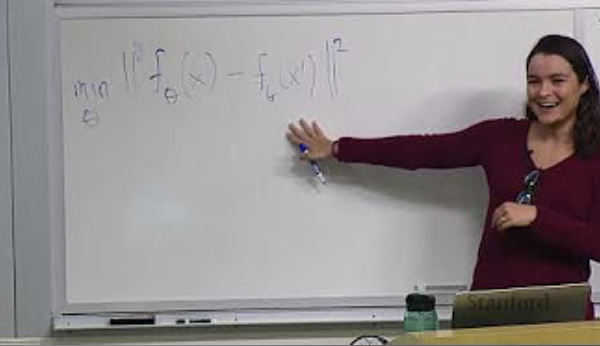 min || f_θ(x) - f_θ(x') ||²
θ
Stanford